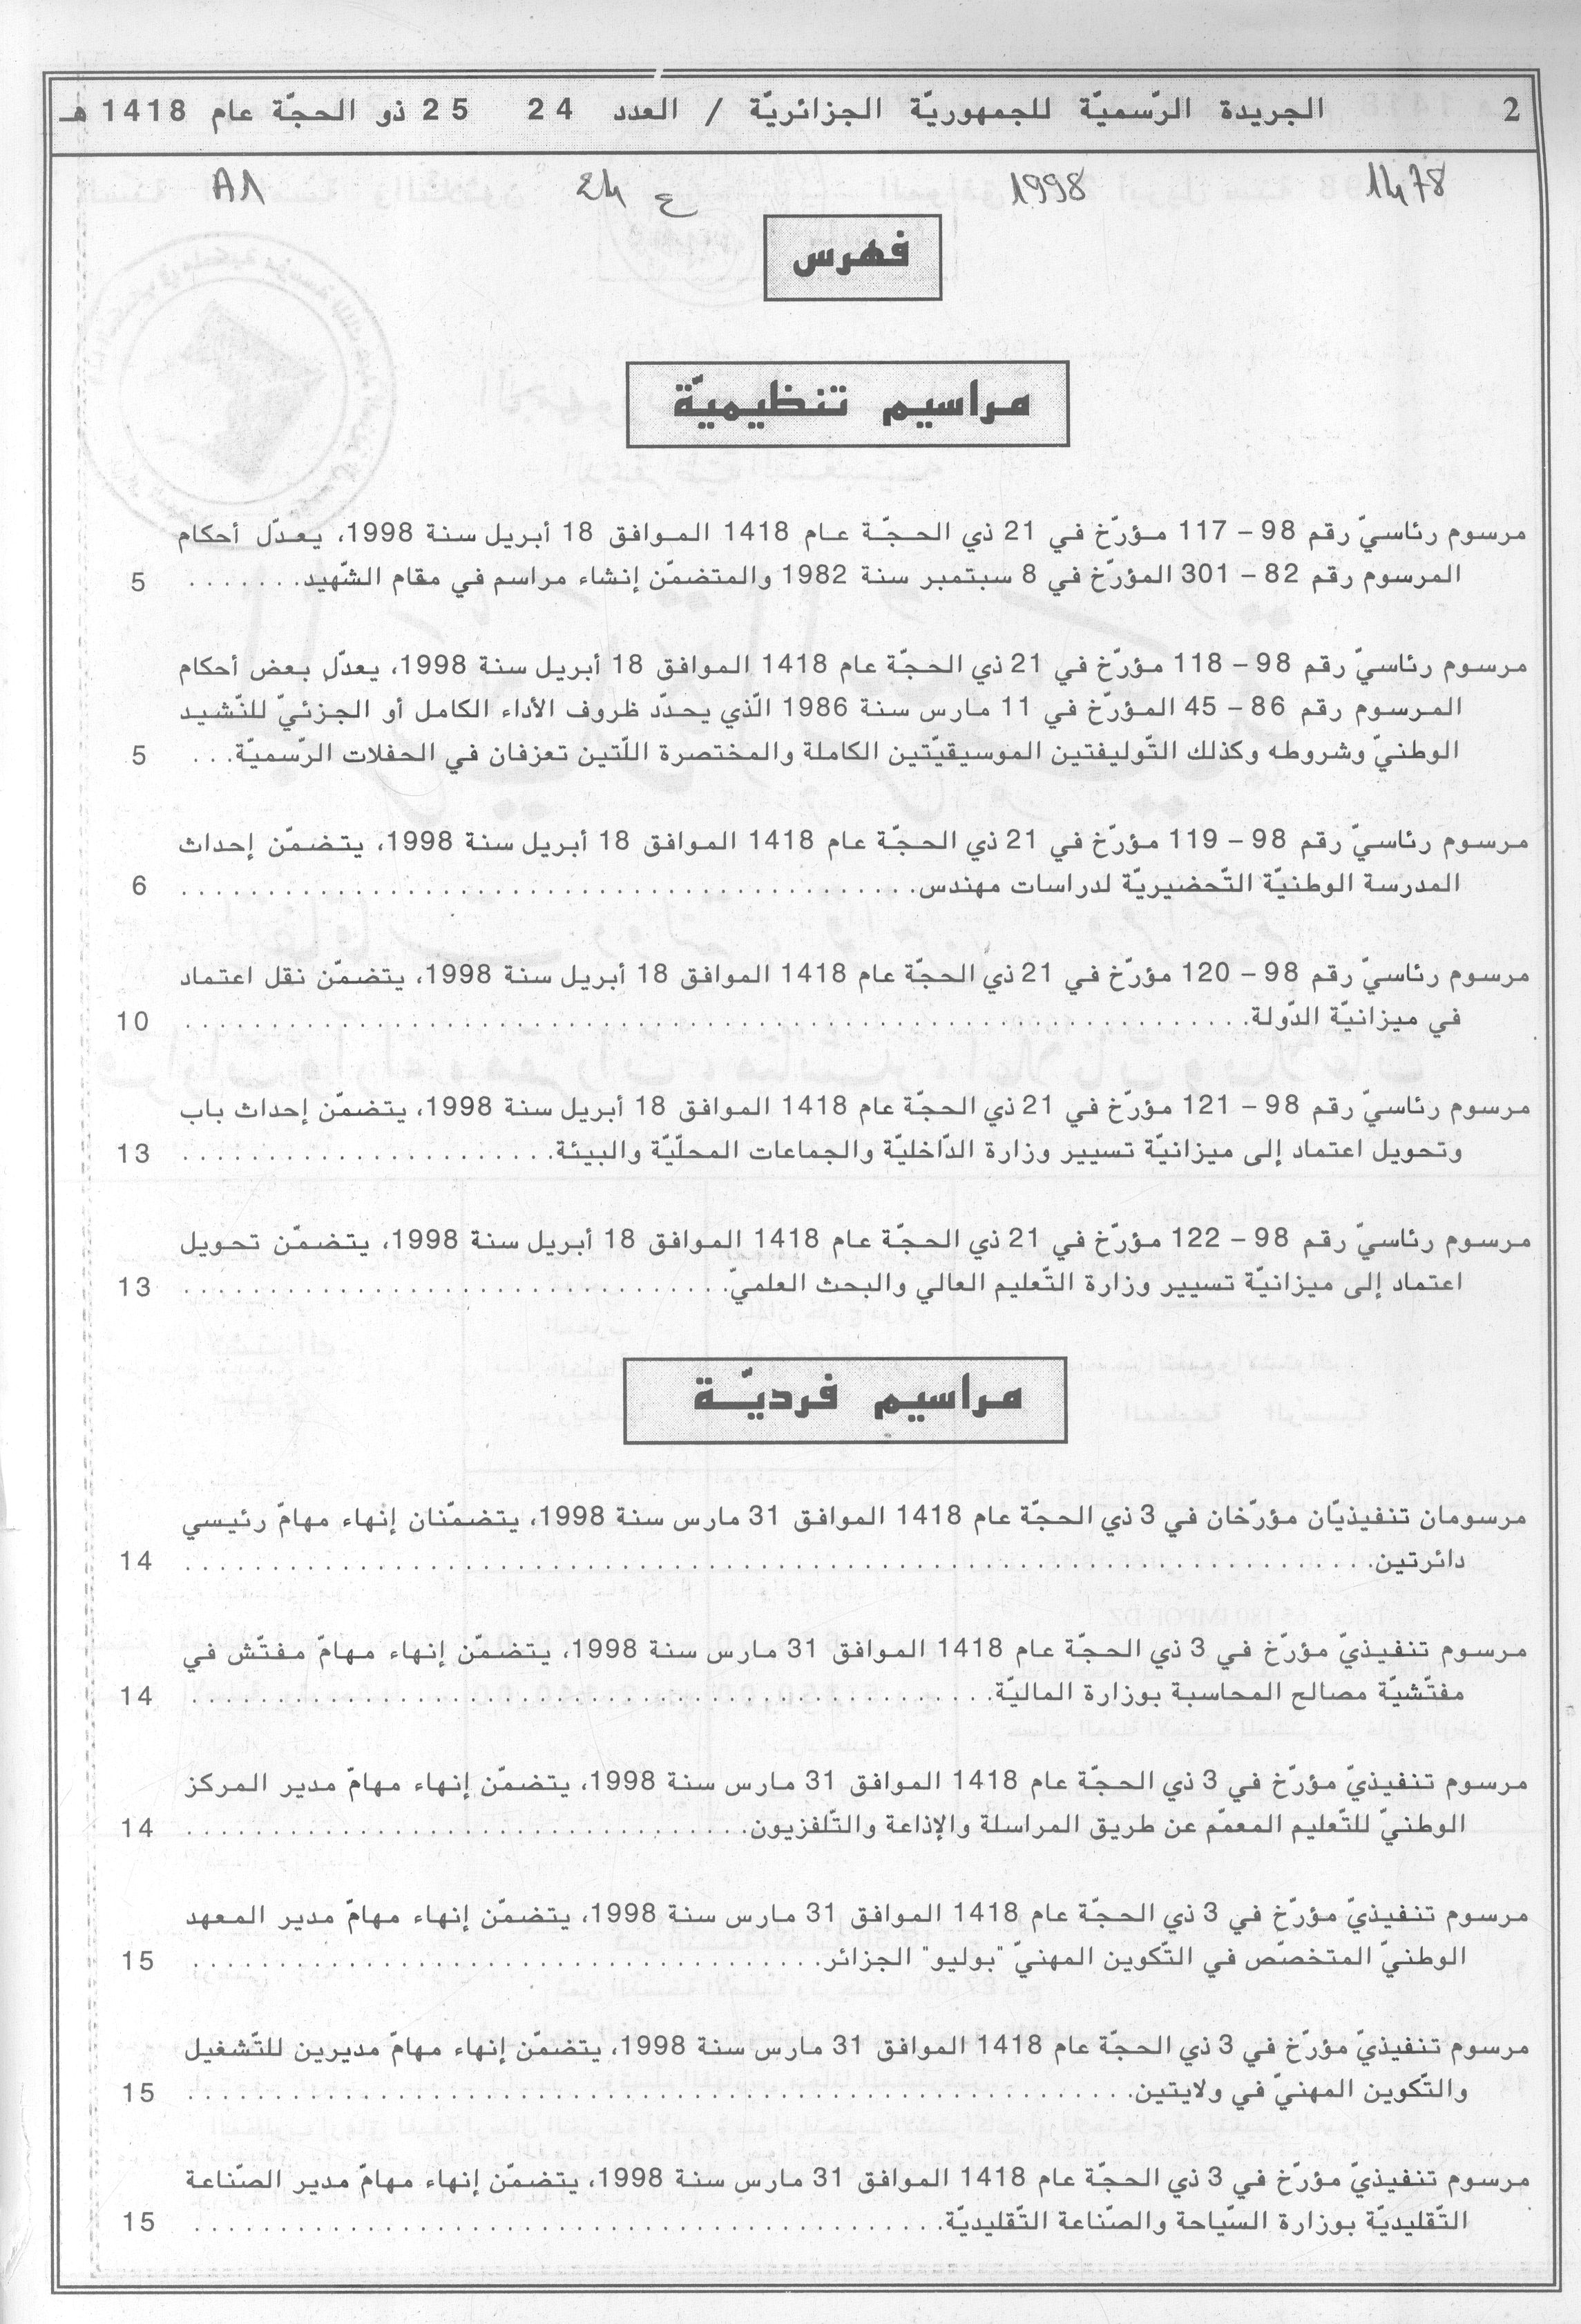 2 الجريدة الرّسميّة للجمهوريّة الجزائريّة / العدد 24 25 ذو الحجّة عام 1418 هـ
1478 1998 ع 24 A1
فهرس
مراسيم تنظيميّة
مرسوم رئاسيّ رقم 98 – 117 مؤرّخ في 21 ذي الحجّة عام 1418 الموافق 18 أبريل سنة 1998، يعدّل أحكام
المرسوم رقم 82 – 301 المؤرّخ في 8 سبتمبر سنة 1982 والمتضمّن إنشاء مراسم في مقام الشّهيد....... 5
مرسوم رئاسيّ رقم 98 – 118 مؤرّخ في 21 ذي الحجّة عام 1418 الموافق 18 أبريل سنة 1998، يعدّل بعض أحكام
المرسوم رقم 86 – 45 المؤرّخ في 11 مارس سنة 1986 الّذي يحدّد ظروف الأداء الكامل أو الجزئيّ للنّشيد
الوطنيّ وشروطه وكذلك التّوليفتين الموسيقيّتين الكاملة والمختصرة اللّتين تعزفان في الحفلات الرّسميّة... 5
مرسوم رئاسيّ رقم 98 – 119 مؤرّخ في 21 ذي الحجّة عام 1418 الموافق 18 أبريل سنة 1998، يتضمّن إحداث
المدرسة الوطنيّة التّحضيريّة لدراسات مهندس........................................ 6
مرسوم رئاسيّ رقم 98 – 120 مؤرّخ في 21 ذي الحجّة عام 1418 الموافق 18 أبريل سنة 1998، يتضمّن نقل اعتماد
في ميزانيّة الدّولة.......................................................... 10
مرسوم رئاسيّ رقم 98 – 121 مؤرّخ في 21 ذي الحجّة عام 1418 الموافق 18 أبريل سنة 1998، يتضمّن إحداث باب
وتحويل اعتماد إلى ميزانيّة تسيير وزارة الدّاخليّة والجماعات المحلّيّة والبيئة..................... 13
مرسوم رئاسيّ رقم 98 – 122 مؤرّخ في 21 ذي الحجّة عام 1418 الموافق 18 أبريل سنة 1998، يتضمّن تحويل
اعتماد إلى ميزانيّة تسيير وزارة التّعليم العالي والبحث العلميّ.............................. 13
مراسيم فرديّة
مرسومان تنفيذيّان مؤرّخان في 3 ذي الحجّة عام 1418 الموافق 31 مارس سنة 1998، يتضمّنان إنهاء مهامّ رئيسي
دائرتين................................................................. 14
مرسوم تنفيذيّ مؤرّخ في 3 ذي الحجّة عام 1418 الموافق 31 مارس سنة 1998، يتضمّن إنهاء مهامّ مفتّش في
مفتّشيّة مصالح المحاسبة بوزارة الماليّة............................................ 14
مرسوم تنفيذيّ مؤرّخ في 3 ذي الحجّة عام 1418 الموافق 31 مارس سنة 1998، يتضمّن إنهاء مهامّ مدير المركز
الوطنيّ للتّعليم المعمّم عن طريق المراسلة والإذاعة والتّلفزيون............................... 14
مرسوم تنفيذيّ مؤرّخ في 3 ذي الحجّة عام 1418 الموافق 31 مارس سنة 1998، يتضمّن إنهاء مهامّ مدير المعهد
الوطنيّ المتخصّص في التّكوين المهنيّ "بوليو" الجزائر................................... 15
مرسوم تنفيذيّ مؤرّخ في 3 ذي الحجّة عام 1418 الموافق 31 مارس سنة 1998، يتضمّن إنهاء مهامّ مديرين للتّشغيل
والتّكوين المهنيّ في ولايتين.................................................... 15
مرسوم تنفيذيّ مؤرّخ في 3 ذي الحجّة عام 1418 الموافق 31 مارس سنة 1998، يتضمّن إنهاء مهامّ مدير الصّناعة
التّقليديّة بوزارة السّياحة والصّناعة التّقليديّة......................................... 15